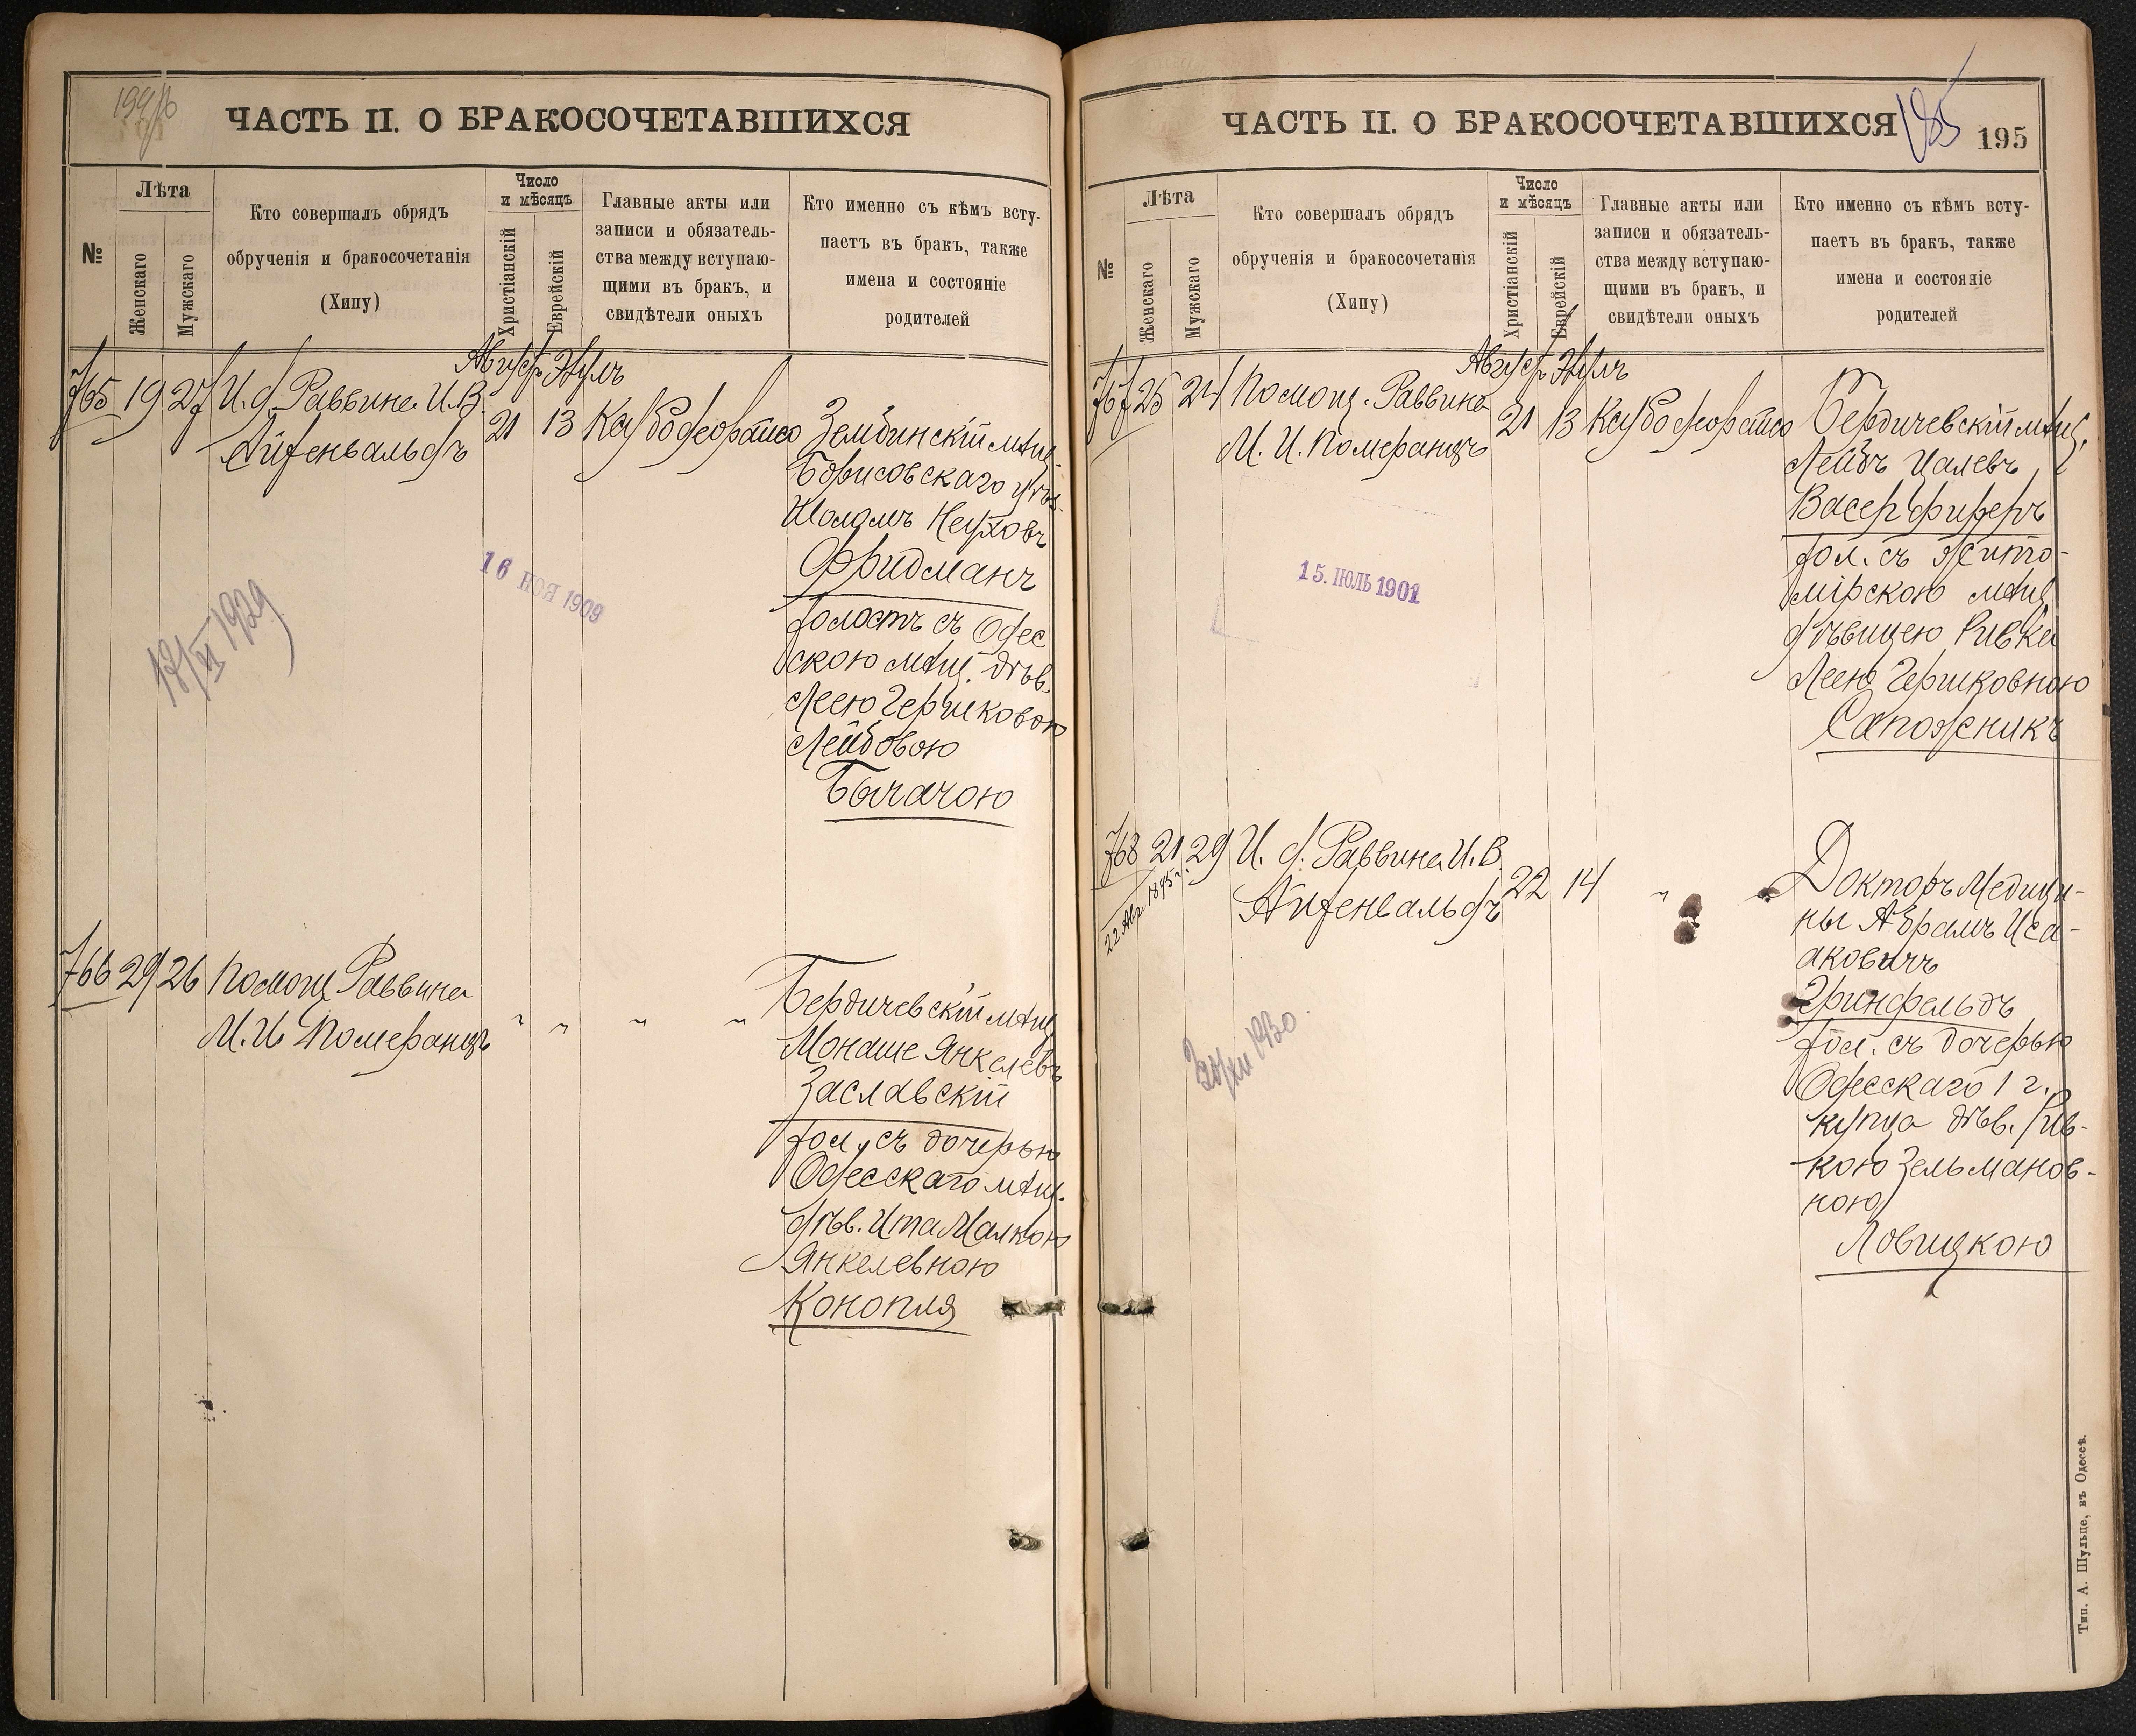 ЧАСТЬ II. О БРАКОСОЧЕТАВШИХСЯ
№
Лѣта
Женскаго
Мужскаго
Кто совершалъ обрядъ
обрученія и бракосочетанія
(Хипу)
Число
и мѣсяцъ
Христіанскій
Еврейскій
Главные акты или
записи и обязатель-
ства между вступаю-
щими въ бракъ, и
свидѣтели оныхъ
Кто именно съ кѣмъ всту-
паетъ въ бракъ, также
имена и состояніе
родителей
Август. Элулъ
765 19 27 И. д. Раввина И. В.
Айзенвальдъ
21 13
Зембинскій мѣщ.
Борисовскаго уѣз.
Шоломъ Неуховъ
Фридманъ
холостъ съ Одес
скою мѣщ. дѣв.
Леею Гершковою
Лейбовою
Бычачою
16 НОЯ 1909
18/VI 1929
766 29 26 Помощ Раввина
М. И Померанцъ
" " " "
Бердичевскій мѣщ
Монаше Янкелевъ
Заславскій
хол. съ дочерью
Одесскаго мѣщ.
дѣв. Ита Малкою
Янкелевною
Конопля
ЧАСТЬ II. О БРАКОСОЧЕТАВШИХСЯ
195
№
Лѣта
Женскаго
Мужскаго
Кто совершалъ обрядъ
обрученія и бракосочетанія
(Хипу)
Число
и мѣсяцъ
Христіанскій
Еврейскій
Главные акты или
записи и обязатель-
ства между вступаю-
щими въ бракъ, и
свидѣтели оныхъ
Кто именно съ кѣмъ всту-
паетъ въ бракъ, также
имена и состояніе
родителей
Август. Элулъ
767 25 24 Помощ. Раввина
М. И. Померанцъ
21 13
Бердичевскій мѣщ.
Лейбъ Цалевъ
Васерфиреръ
хол. съ Жито-
мірскою мѣщ
дѣвицею Ривка
Леею Гершковною
Сапожникъ
15. ІЮЛЬ 1901
768 21 29 И. д. Раввина И. В.
Айзенвальдъ
22 Авг. 1895 г.
22 14 " "
Докторъ Медици-
ны Абрамъ Иса-
аковичъ
Гринфельдъ
хол. съ дочерью
Одесскаго 1 г.
купца дѣв. Рив-
кою Зельманов-
ною
Ловицкою
30/XII 1930
Тип. А. Шульце, въ Одессѣ.